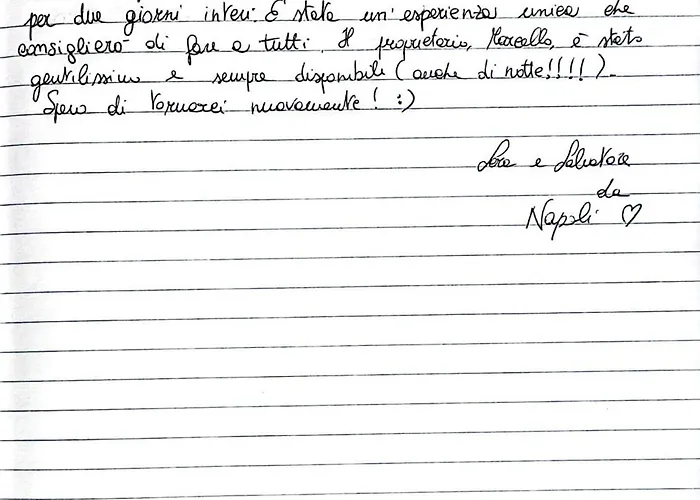 per due giorni interi. È stata un'esperienza unica che
consiglierò di fare a tutti. Il proprietario, Marcello, è stato
gentilissimo e sempre disponibile (anche di notte!!!!).
Spero di tornarci nuovamente! :)
e Salvatore
da
Napoli ♡